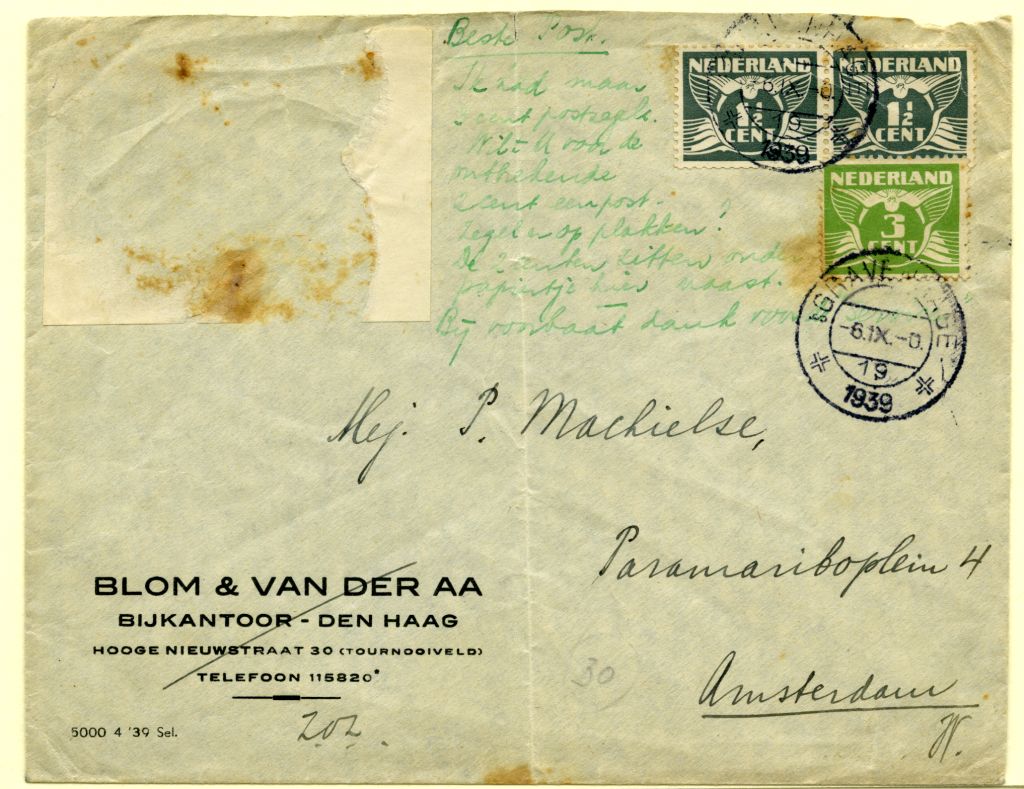 Beste Post.
Ik had maar
5 cent postzegels.
Wilt U voor de
ontbrekende
2 cent een post-
zegel er op plakken?
De 2 centen zitten onder
papiertje hier naast.
Bij voorbaat dank voor
NEDERLAND
1½
CENT
NEDERLAND
1½
CENT
1939
NEDERLAND
3
CENT
-6.IX.-0.
19
1939
Mej. P. Machielse,
Paramariboplein 4
Amsterdam
W.
BLOM & VAN DER AA
BIJKANTOOR - DEN HAAG
HOOGE NIEUWSTRAAT 30 (TOURNOOIVELD)
TELEFOON 115820*
30
202.
5000 4 '39 Sel.